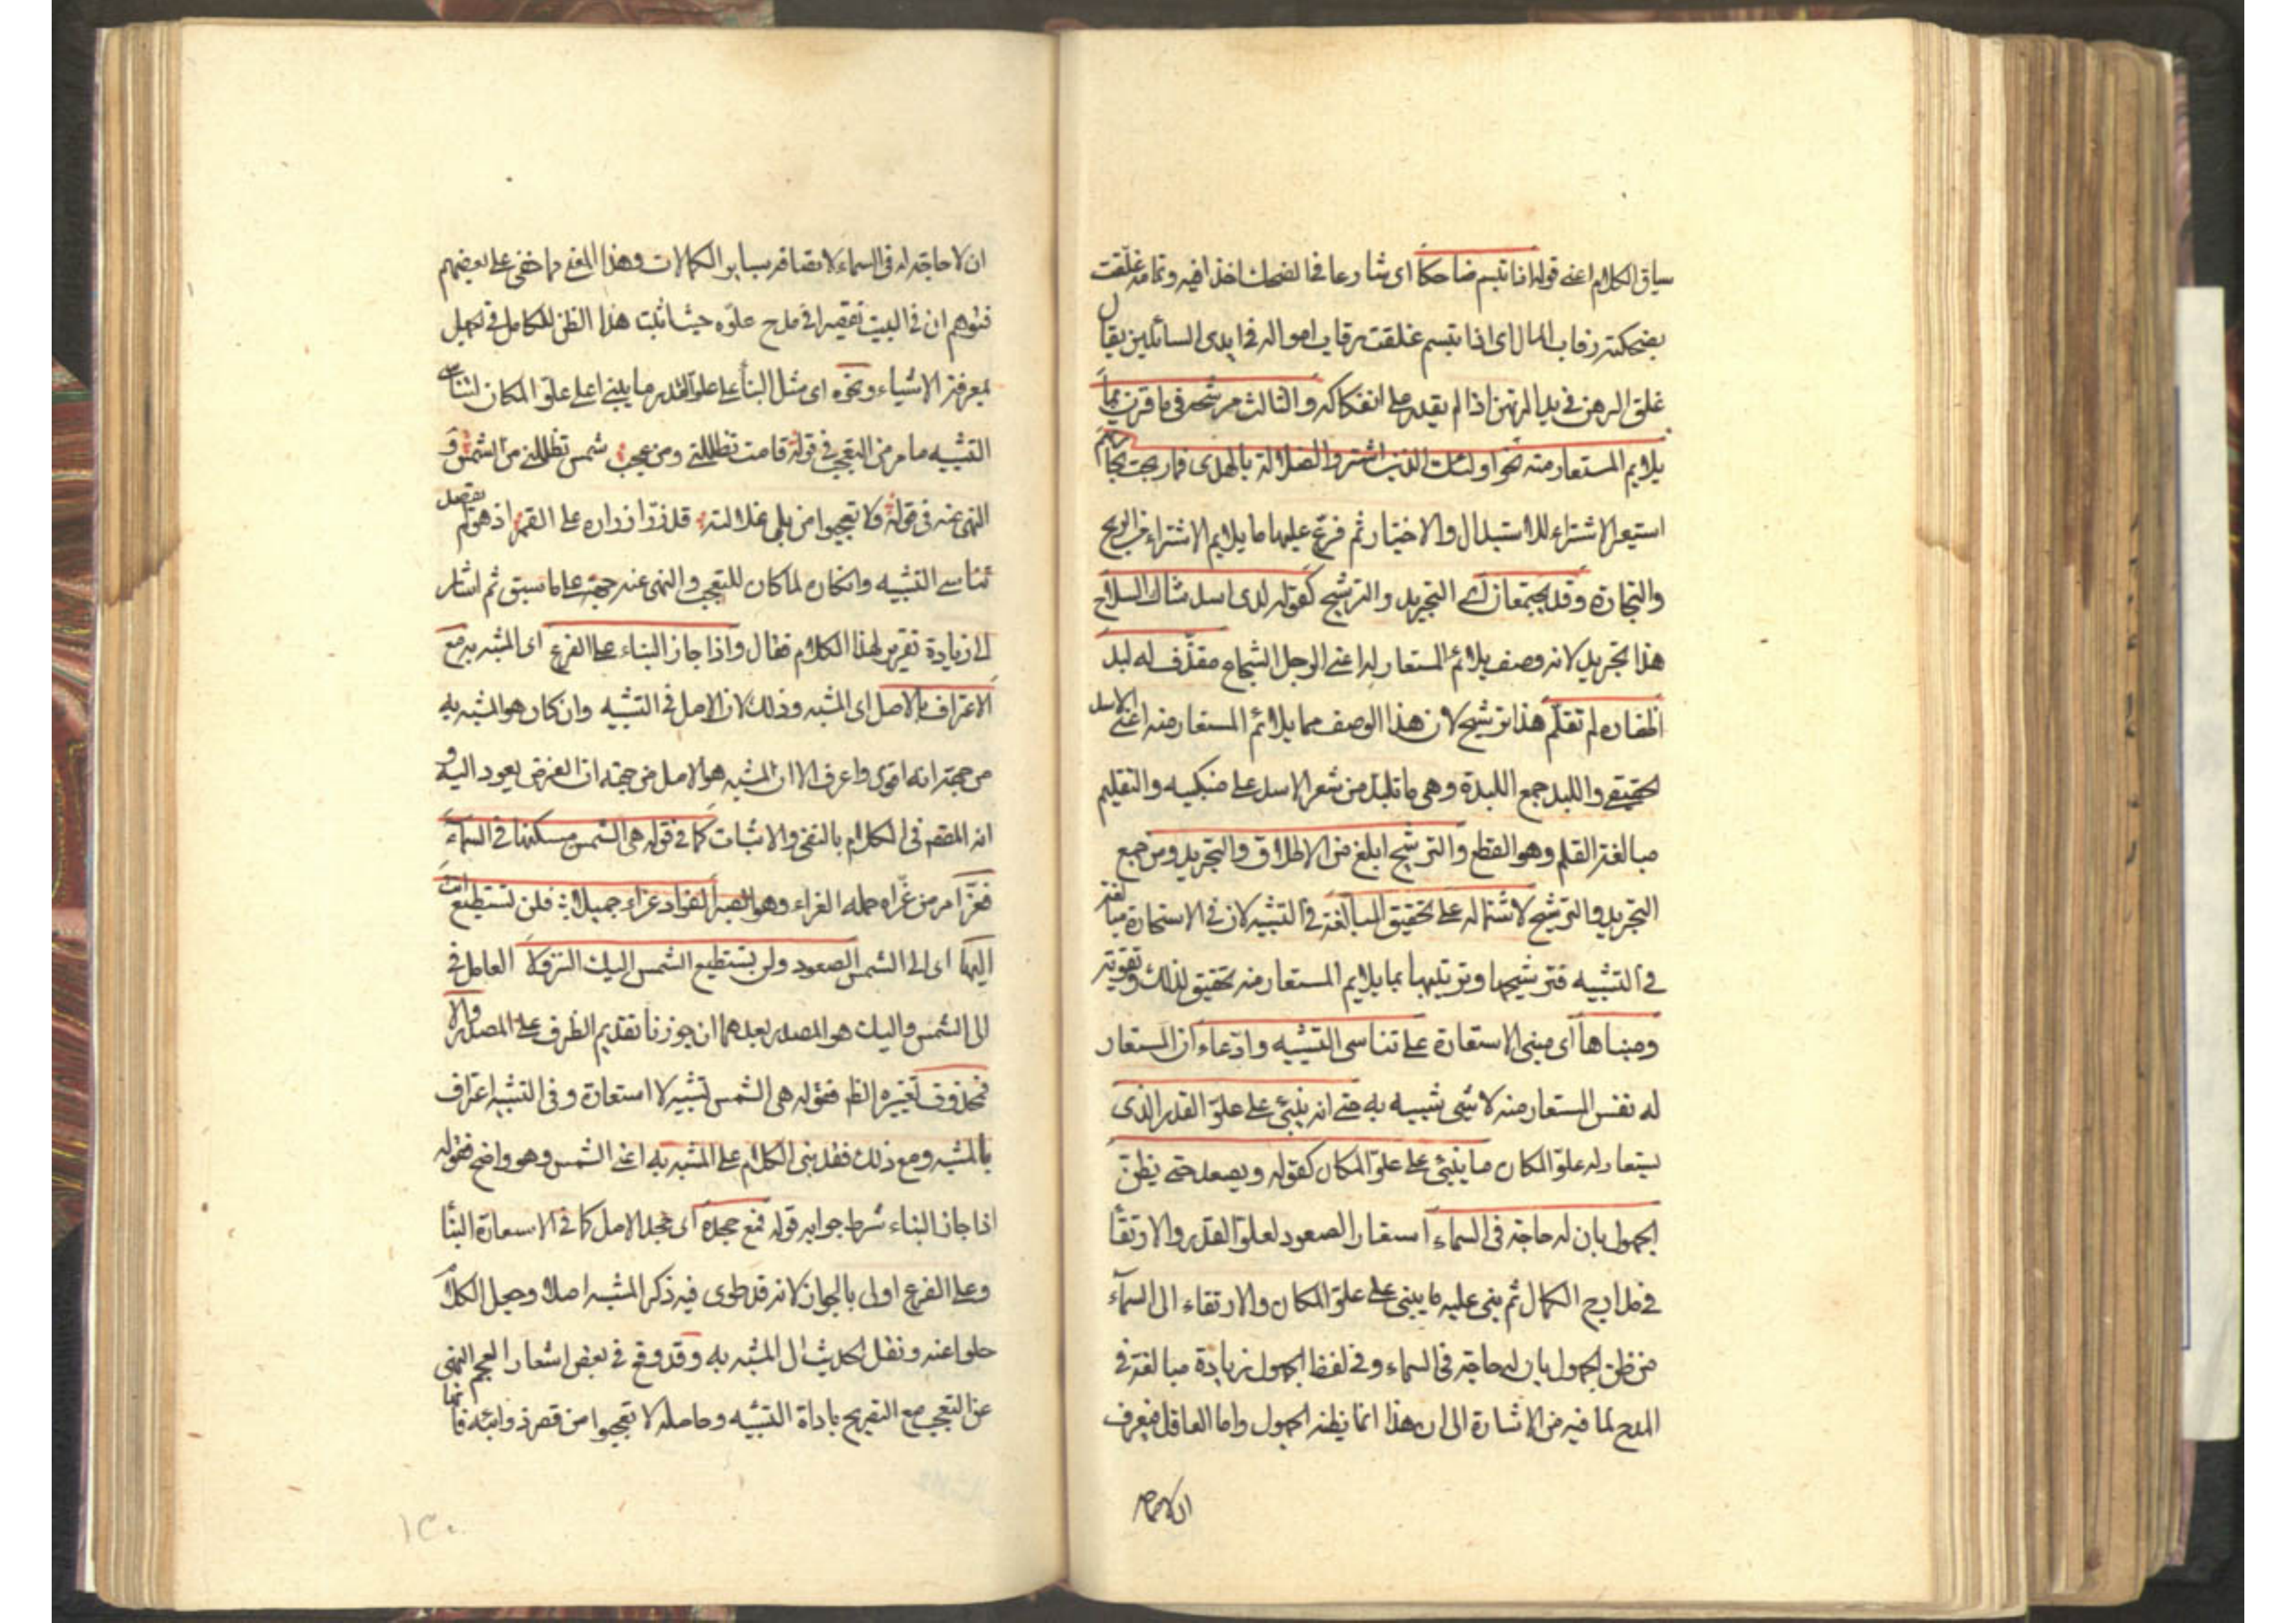 سياق الكلام اعنى قوله اذا تبسم ضاحكا اى شارعا فى الضحك اخذا فيه وتمامه غلقت
بضحكته رقاب المال اى اذا تبسم غلقت رقاب امواله فى ايدى السائلين يقال
غلق الرهن فى يد المرتهن اذا لم يقدر على انفكاكه والثالث مرشحة وهى ما قرن بما
يلايم المستعار منه نحو اولئك الذين اشتروا الضلالة بالهدى فما ربحت تجارتهم
استعير الاشتراء للاستبدال والاختيار ثم فرع عليها ما يلايم الاشتراء من الربح
والتجارة وقد يجتمعان اى التجريد والترشيح كقوله لدى اسد شاك السلاح
هذا تجريد لانه وصف يلائم المستعار له اعنى الرجل الشجاع مقذف له لبد
اظفاره لم تقلم هذا ترشيح لان هذا الوصف مما يلائم المستعار منه اعنى الاسد
الحقيقى واللبد جمع اللبدة وهى ما تلبد من شعر الاسد على منكبيه والتقليم
مبالغة القلم وهو القطع والترشيح ابلغ من الاطلاق والتجريد ومن جمع
التجريد والترشيح لاشتماله على تحقيق المبالغة فى التشبيه لان فى الاستعارة مبالغة
فى التشبيه فترشيحها وتزيينها بما يلايم المستعار منه تحقيق لذلك وتقوية
ومبناها اى مبنى الاستعارة على تناسى التشبيه وادّعاء ان المستعار
له نفس المستعار منه لا شئ شبيه به حتى انه يبنى على علوّ القدر الذى
يستعار له علوّ المكان ما يبنى على علوّ المكان كقوله ويصعد حتى يظن
الجهول بان له حاجة فى السماء استعار الصعود لعلوّ القدر والارتقاء
فى مدارج الكمال ثم بنى عليه ما يبنى على علوّ المكان والارتقاء الى السماء
من ظن الجهول بان له حاجة فى السماء وفى لفظ الجهول زيادة مبالغة فى
المدح لما فيه من الاشارة الى ان هذا انما يظنه الجهول واما العاقل فيعرف
ان لا حاجة
ان لا حاجة له فى السماء لاتصافه بسائر الكمالات وهذا المعنى مما خفى على بعضهم
فتوهم ان فى البيت تقصيرا فى مدح علوّه حيث اثبت هذا الظن للكامل فى الجهل
بمعرفة الاشياء ونحوه اى مثل البناء على علوّ القدر ما يبنى على علوّ المكان لتناسى
التشبيه ما مر من التعجب فى قوله قامت تظللنى ومن عجب شمس تظللنى من الشمس و
النهى عنه فى قوله لا تعجبوا من بلى غلالته قد زرّ ازراره على القمر اذ لو لم يقصد
تناسى التشبيه وانكاره لما كان للتعجب والنهى عنه جهة على ما سبق ثم اشار
الى زيادة تقرير لهذا الكلام فقال واذا جاز البناء على الفرع اى المشبه به مع
الاعتراف بالاصل اى المشبه وذلك لان الاصل فى التشبيه وان كان هو المشبه به
من جهة انه اقوى واعرف الا ان المشبه هو الاصل من جهة ان الغرض يعود اليه و
انه المقصود فى الكلام بالنفى والاثبات كما فى قوله هى الشمس مسكنها فى السماء
فعزّ امر من عزّاه حمله العزاء وهو الصبر الفؤاد عزاء جميلا فلن تستطيع انت
اليها اى الى الشمس الصعود ولن تستطيع الشمس اليك النزولا العامل فى
الى الشمس واليك هو المصدر بعدهما ان جوزنا تقديم الظرف على المصدر والا
فمحذوف تفسيره الظ فقوله هى الشمس تشبيه لا استعارة وفى التشبيه اعتراف
بالمشبه ومع ذلك فقد بنى الكلام على المشبه به اعنى الشمس وهو واضح فقوله
اذا جاز البناء شرط جوابه قوله فمع جحده اى جحد الاصل كما فى الاستعارة البناء
وعلى الفرع اولى بالجواز لانه قد طوى فيه ذكر المشبه اصلا وجعل الكلام
خلوا عنه ونقل الحديث الى المشبه به وقد وقع فى بعض اشعار العجم النهى
عن التعجب مع التصريح باداة التشبيه وحاصله لا تعجبوا من قصر ذوائبه فانها
١٣٠